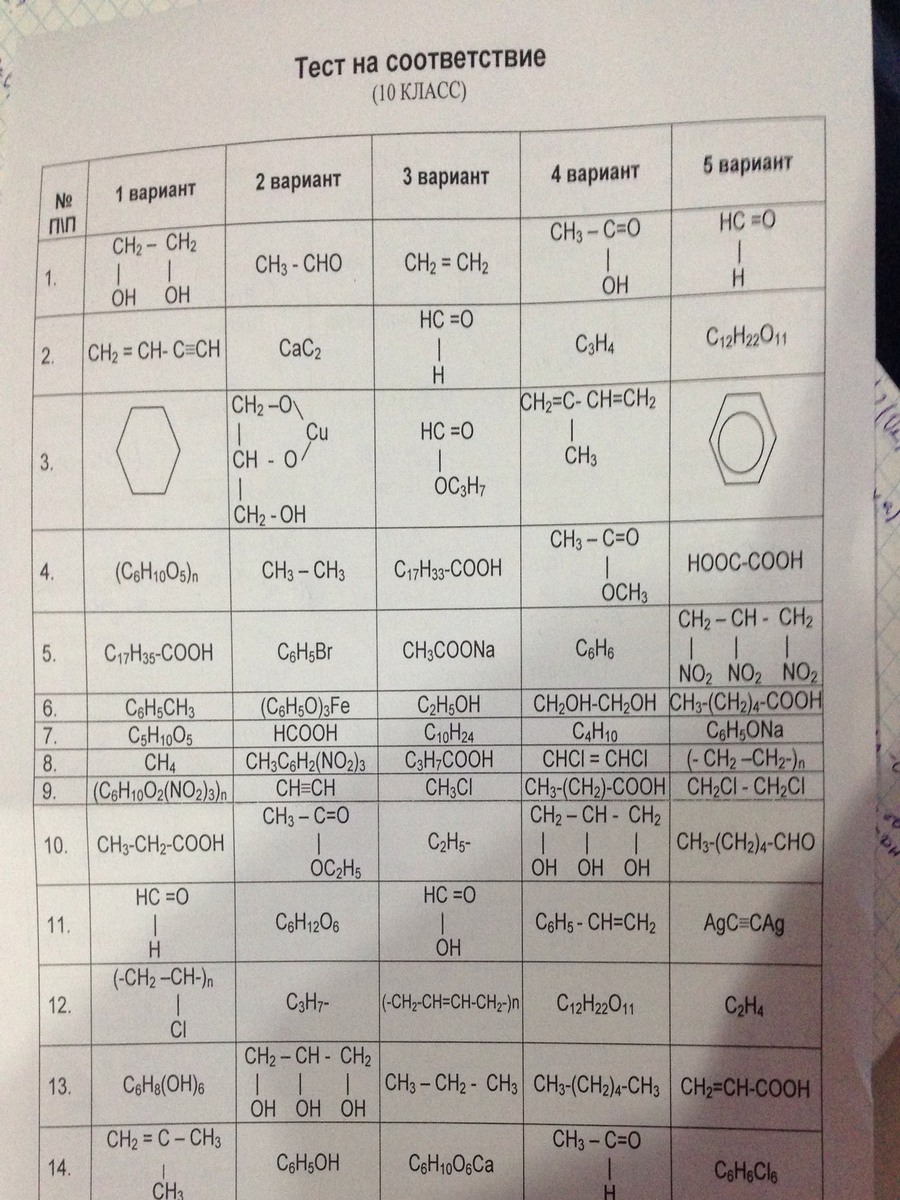 Тест на соответствие
(10 КЛАСС)
№ П\П | 1 вариант | 2 вариант | 3 вариант | 4 вариант | 5 вариант
1. | CH₂ – CH₂ | CH₃ - CHO | CH₂ = CH₂ | CH₃ – C=O | HC =O
| | | | |
OH OH | | | OH | H
2. | CH₂ = CH- C≡CH | CaC₂ | HC =O | C₃H₄ | C₁₂H₂₂O₁₁
| | | H | |
3. | | CH₂ –O\ | HC =O | CH₂=C- CH=CH₂ |
| | Cu | | |
| | CH - O/ | OC₃H₇ | CH₃ |
| | CH₂ - OH | | |
4. | (C₆H₁₀O₅)n | CH₃ – CH₃ | C₁₇H₃₃-COOH | CH₃ – C=O | HOOC-COOH
| | | | OCH₃ |
5. | C₁₇H₃₅-COOH | C₆H₅Br | CH₃COONa | C₆H₆ | CH₂ – CH - CH₂
| | | | | NO₂ NO₂ NO₂
6. | C₆H₅CH₃ | (C₆H₅O)₃Fe | C₂H₅OH | CH₂OH-CH₂OH | CH₃-(CH₂)₄-COOH
7. | C₅H₁₀O₅ | HCOOH | C₁₀H₂₄ | C₄H₁₀ | C₆H₅ONa
8. | CH₄ | CH₃C₆H₂(NO₂)₃ | C₃H₇COOH | CHCl = CHCl | (- CH₂ –CH₂-)n
9. | (C₆H₁₀O₂(NO₂)₃)n | CH≡CH | CH₃Cl | CH₃-(CH₂)-COOH | CH₂Cl - CH₂Cl
10. | CH₃-CH₂-COOH | CH₃ – C=O | C₂H₅- | CH₂ – CH - CH₂ | CH₃-(CH₂)₄-CHO
| | OC₂H₅ | | OH OH OH |
11. | HC =O | C₆H₁₂O₆ | HC =O | C₆H₅ - CH=CH₂ | AgC≡CAg
| H | | OH | |
12. | (-CH₂ –CH-)n | C₃H₇- | (-CH₂-CH=CH-CH₂-)n | C₁₂H₂₂O₁₁ | C₂H₄
| Cl | | | |
13. | C₆H₈(OH)₆ | CH₂ – CH - CH₂ | CH₃ – CH₂ - CH₃ | CH₃-(CH₂)₄-CH₃ | CH₂=CH-COOH
| | OH OH OH | | |
14. | CH₂ = C – CH₃ | C₆H₅OH | C₆H₁₀O₆Ca | CH₃ – C=O | C₆H₆Cl₆
| CH₃ | | | H |